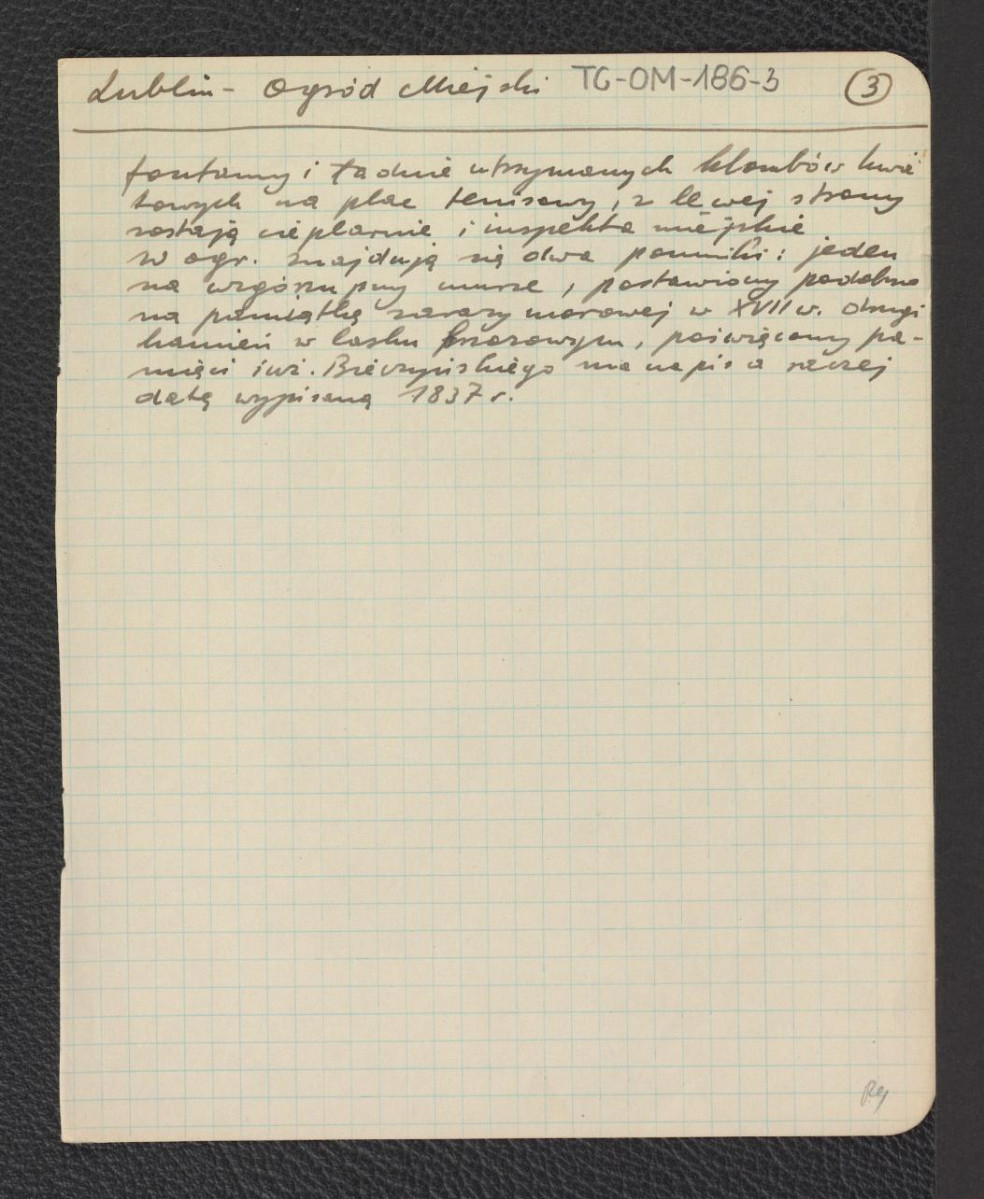 Lublin - Ogród Miejski TG-OM-186-3 3
fontanny i ładnie utrzymanych klombów kwia
towych na plac tenisowy, z lewej strony
zostają cieplarnie i inspekta miejskie
w ogr. znajdują się dwa pomniki: jeden
na wzgórzu przy murze, postawiony podobno
na pamiątkę zarazy morowej w XVII w. drugi
kamień w lasku brzozowym, poświęcony pa-
mięci inż. Bieczyńskiego ma napis a raczej
datę wypisaną 1837 r.